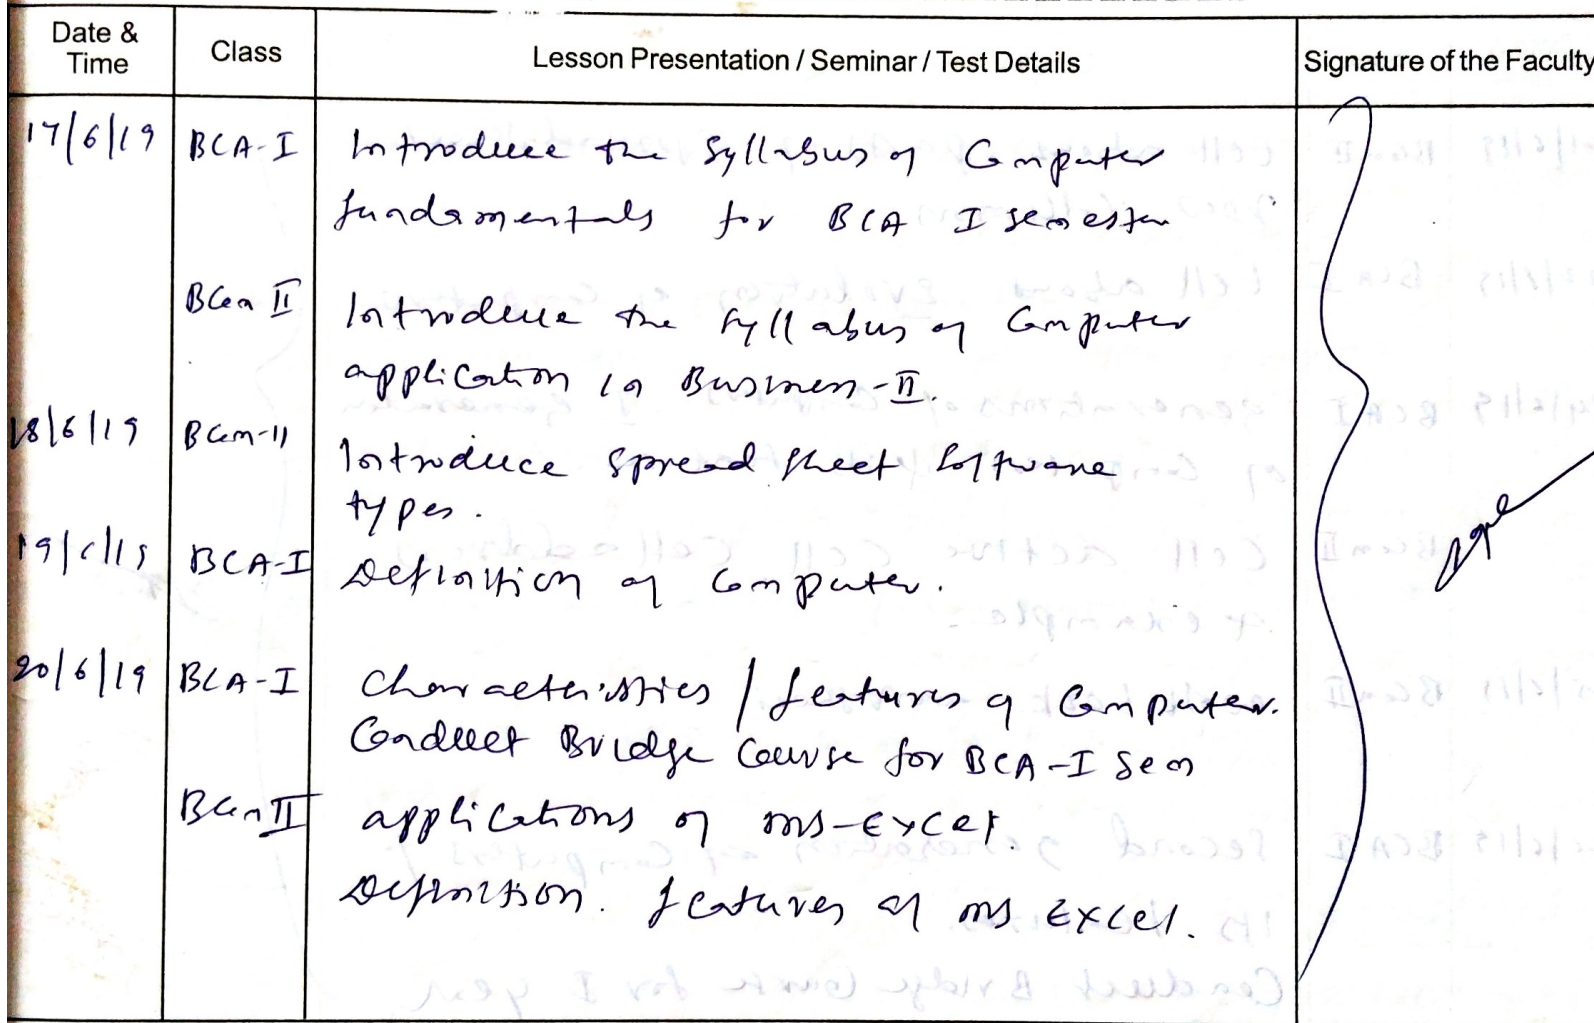 Date & Time
Class
Lesson Presentation / Seminar / Test Details
Signature of the Faculty
17/6/19 BCA-I Introduce the Syllabus of Computer
fundamentals for BCA I semester
BCom II Introduce the Syllabus of Computer
application in Business-II.
18/6/19 BCom-II Introduce spread sheet Software
types.
19/6/19 BCA-I Definition of Computer.
20/6/19 BCA-I Characteristics / features of Computer.
Conduct Bridge Course for BCA-I Sem
BCom II applications of ms-Excel.
Definition. features of ms Excel.